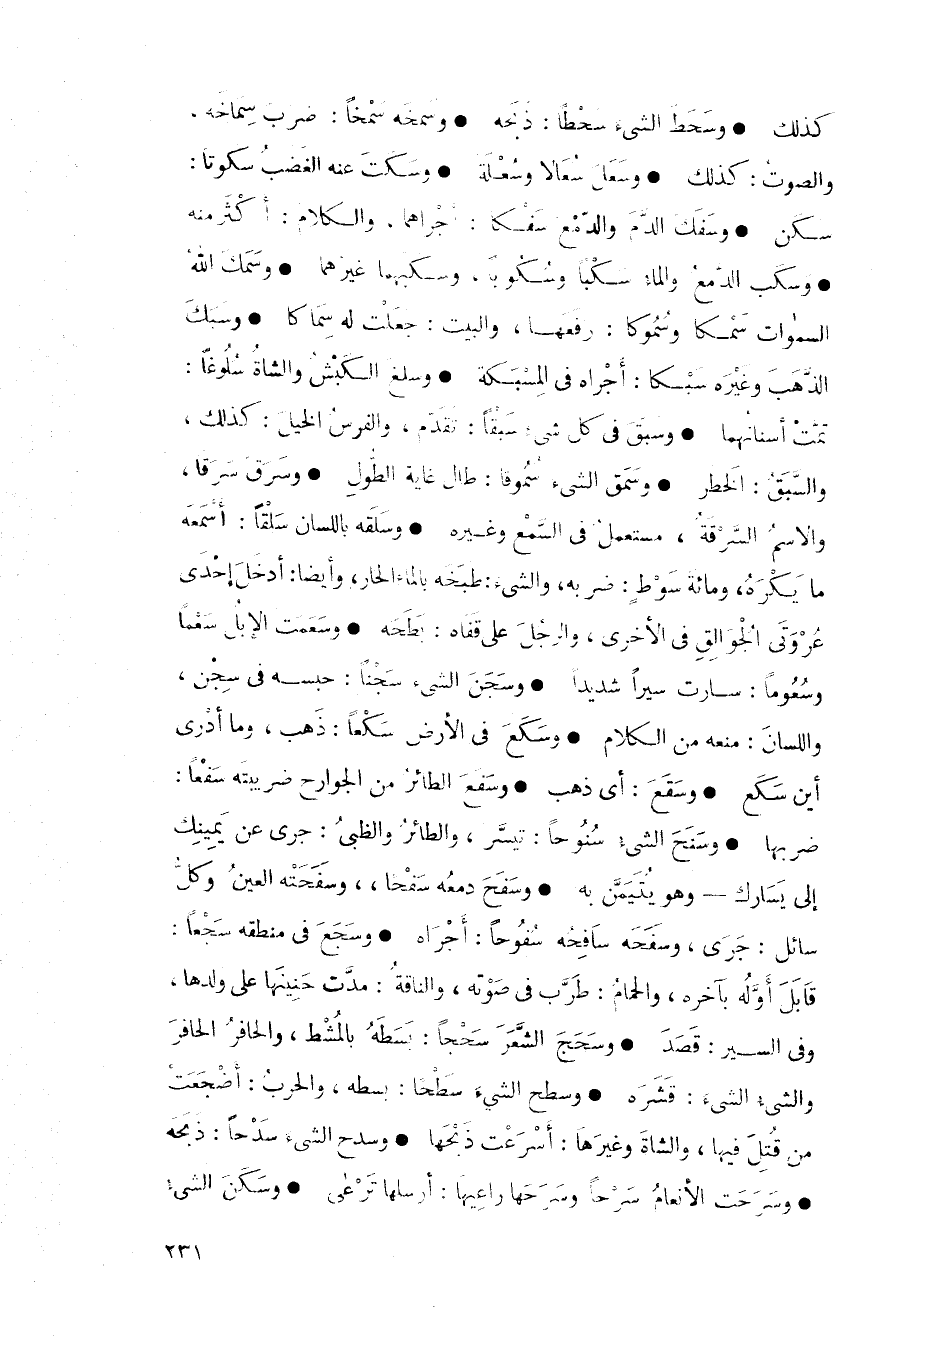 كذلك ● وسَحَطَ الشىء سَحْطًا : ذَبَحه ● وسمخه سَمْخاً : ضرب سِمَاخَه .
والصوتُ : كذلك ● وسَعَلَ سُعَالا وسُعْلَةً ● وسَكَتَ عنه الغَضبُ سكوتا :
سكن ● وسَفَكَ الدَّمَ والدَّمْعَ سَفْكا : أجْراهما . والكلامَ : أكْثَر منه
● وسَكَب الدَّمعُ والماءُ سَكْباً وسُكُوباً ، وسكبهما غيرُهما ● وسَمَكَ اللهُ
السمٰوات سَمْكا وسُمُوكا : رفَعَها ، والبيتَ : جعَلْت له سِمَاكا ● وسَبَكَ
الذَّهَبَ وغَيْرَه سَبْكا : أَجْراه فى المِسْبَكة ● وسلغ الكَبْشُ والشاةُ سُلُوغاً :
تمّتْ أسنانُهما ● وسبَقَ فى كل شىء سَبْقاً : تقَدّم ، والفرسُ الخيلَ : كذلك ،
والسَّبَقُ : الخَطر ● وسَمَق الشىء سُمُوقا : طال غاية الطُّولِ ● وسَرَقَ سَرَقا ،
والاسمُ السَّرْقَةُ ، مستعملٌ فى السَّمْعِ وغيره ● وسَلَقه باللسان سَلْقاً : أَسْمَعَه
ما يَكْرَهُ، ومائةَ سَوْطٍ : ضربه، والشىء: طبَخَه بالماء الحار، وأيضا: أدخَلَ إحْدَى
عُرْوَتَى الجُوَالِقِ فى الأخرى ، والرجُلَ على قفَاه : بَطَحَه ● وسَعَمت الإبلُ سَعْما
وسُعُوماً : سارت سيراً شديداً ● وسَجَنَ الشىء سَجْناً : حبسه فى سِجْنٍ ،
واللسانَ : منعه من الكلام ● وسَكَعَ فى الأرض سَكْعاً : ذَهب ، وما أدْرِى
أين سَكَع ● وسَقَعَ : أى ذهب ● وسَفَعَ الطائرُ من الجوارح ضريبتَه سَفْعاً :
ضربها ● وسَنَحَ الشىءُ سُنُوحاً : تيسَّر ، والطائرُ والظبىُ : جرى عن يَمِينِك
إلى يَسَارك — وهو يُتَيَمَّن به ● وسَفَحَ دمعُه سَفْحًا ،، وسفَحَتْه العينُ وكلُّ
سائل : جَرَى ، وسفَحَه سافِحُه سُفُوحاً : أَجْرَاه ● وسَجَعَ فى منطقه سَجْعاً :
قَابَلَ أوَّلُه بآخره ، والحمامُ : طَرَّب فى صَوْته ، والناقةُ : مدَّت حَنِينَها على ولدها ،
وفى السير : قَصَدَ ● وسَحَجَ الشَّعَرَ سَحْجاً : بَسَطَهُ بالمُشْط ، والحافرُ الحافرَ
والشىءُ الشىءَ : قَشَرَه ● وسطح الشىءَ سَطْحًا : بسطه ، والحربُ : أَضْجَعَتْ
من قُتِلَ فيها ، والشاةَ وغيرَها : أَسْرَعْت ذَبْحَها ● وسدح الشىء سَدْحاً : ذبحَه
● وسَرَحَت الأنعامُ سَرْحاً وسَرَحَها راعِيهَا : أرسلها تَرْعَى ● وسَكَنَ الشىءُ
٢٣١